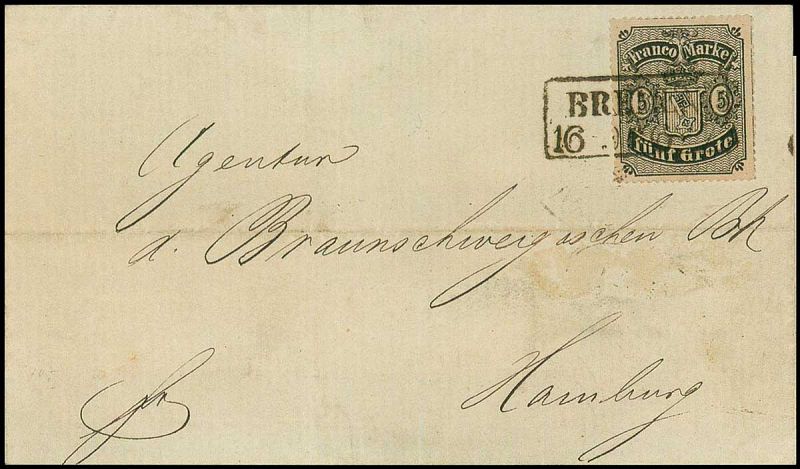 Franco Marke
5 5
fünf Grote
BRE
16
Agentur
d. Braunschweigischen Bk
Hamburg